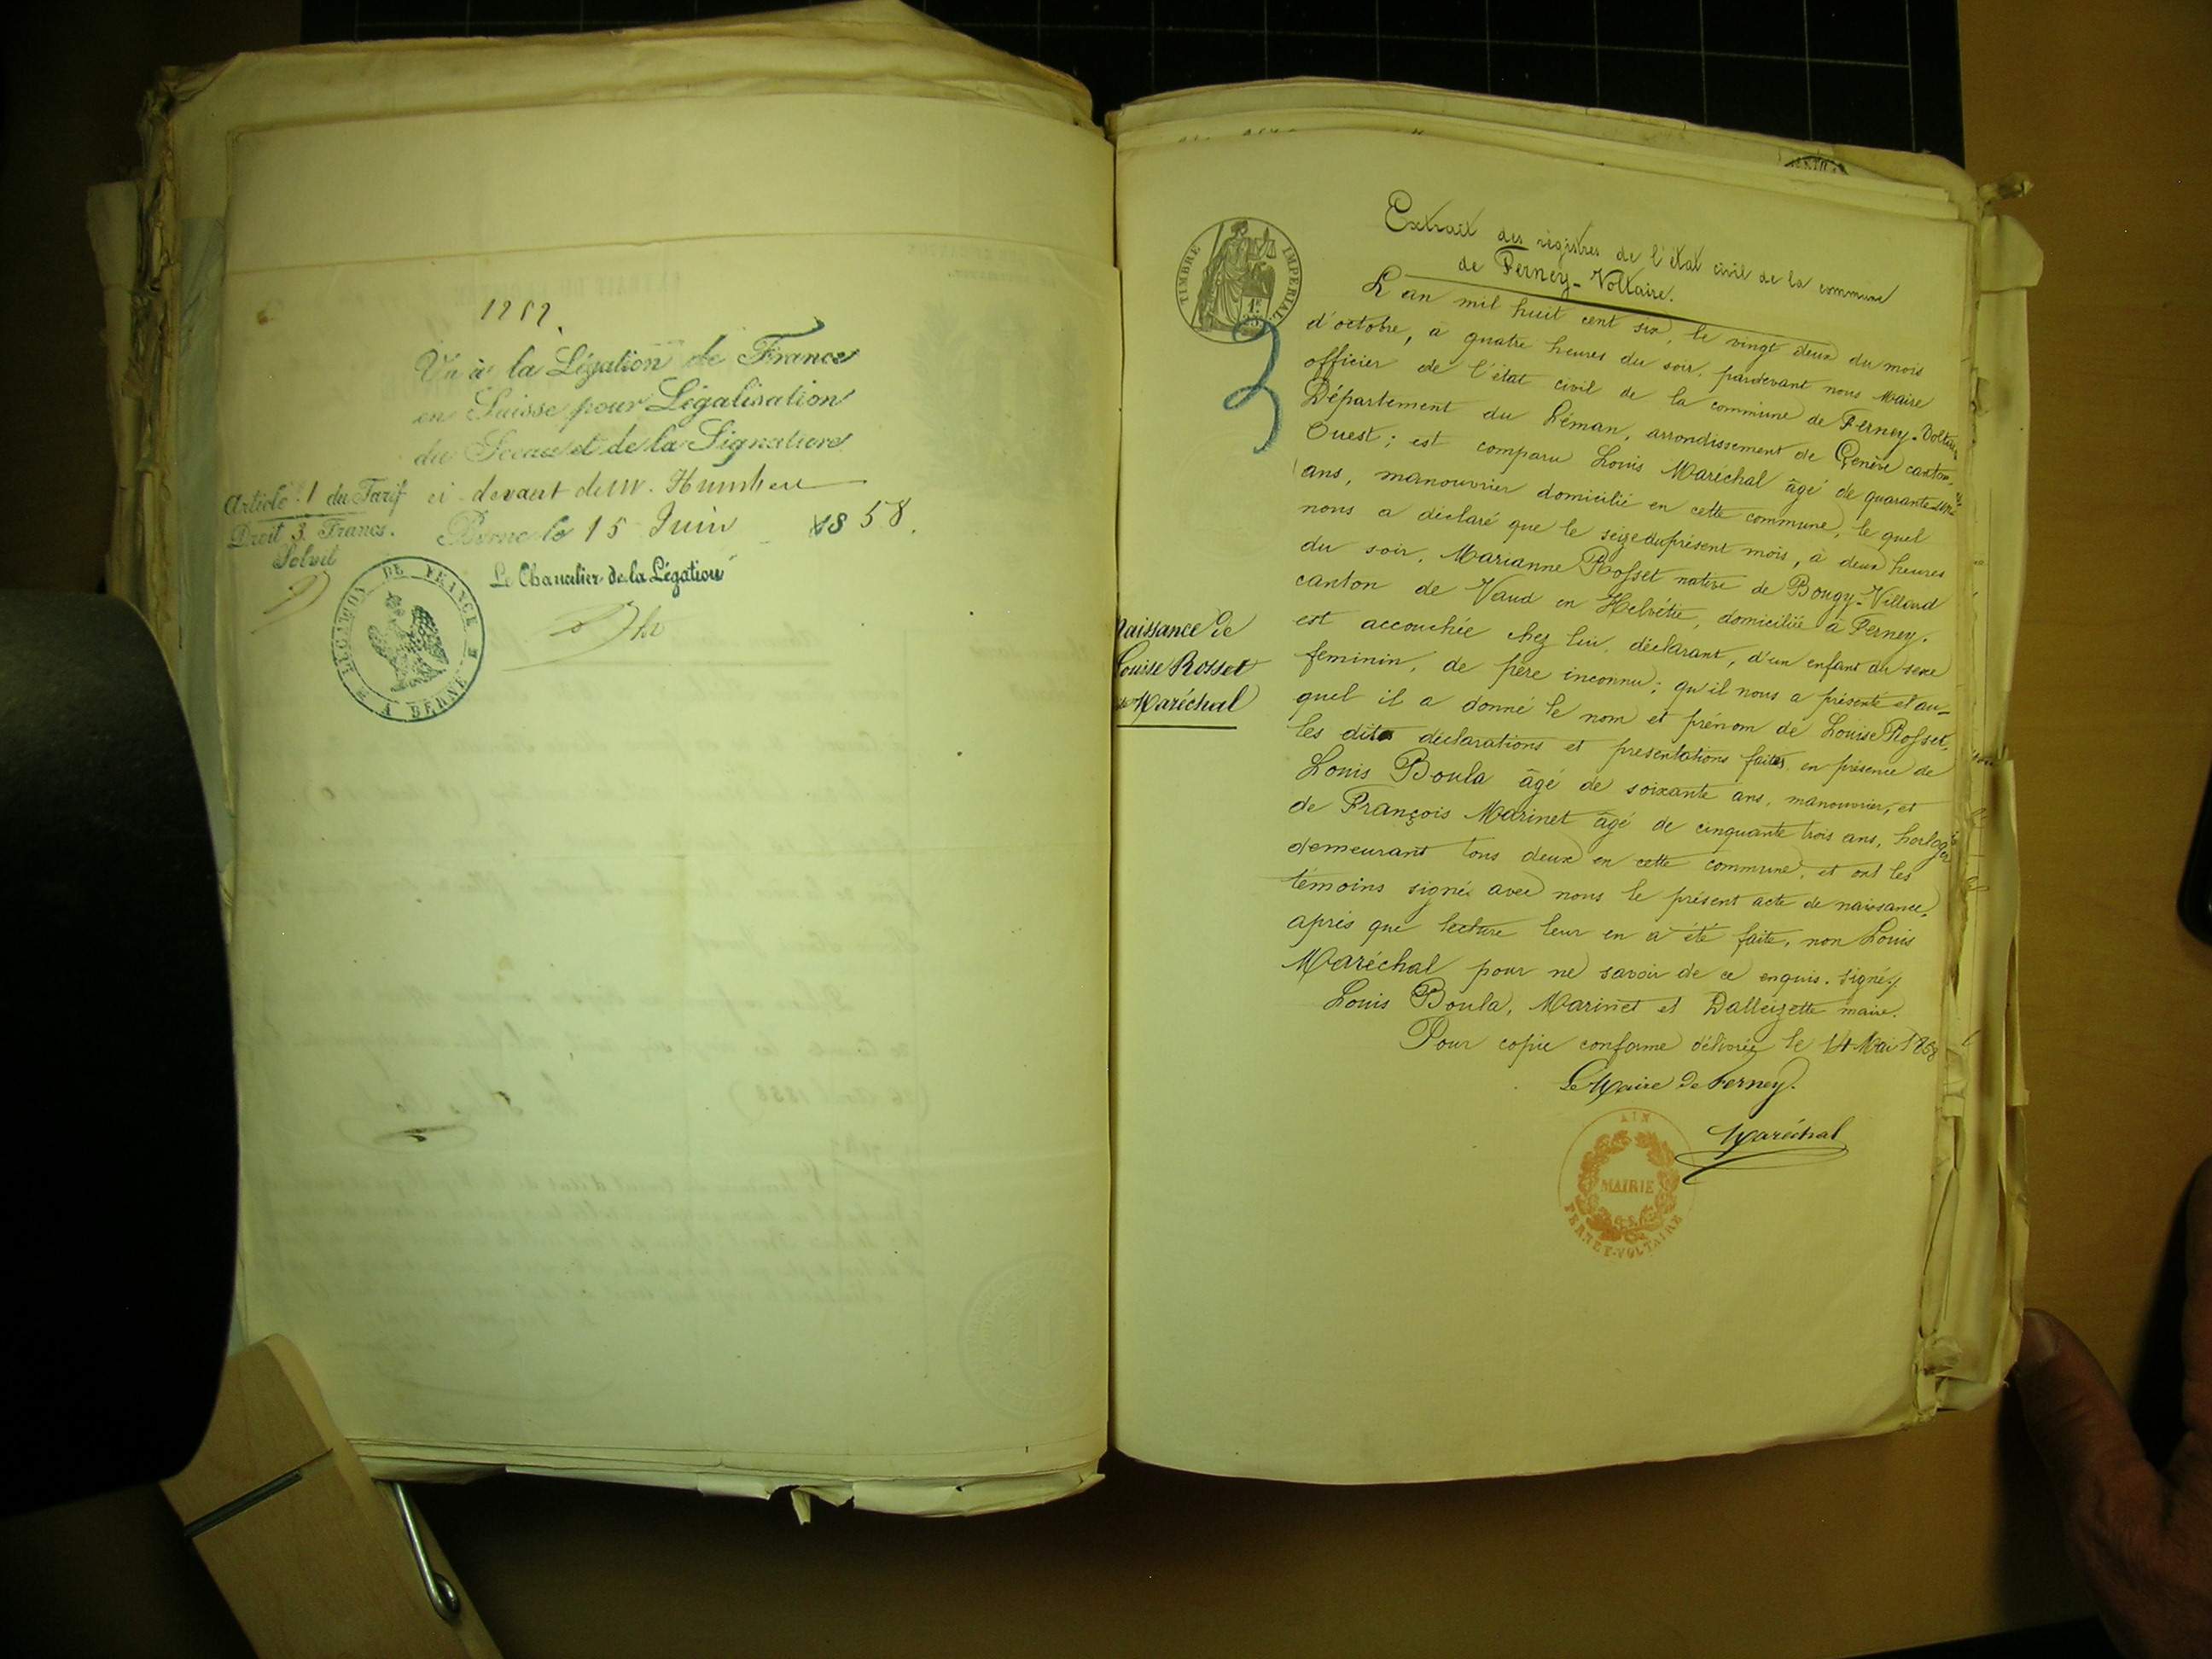 Vu à la Légation de France
en Suisse pour Légalisation
du Sceau et de la Signature
ci-devant de M. Humbert
Article 1 du Tarif
Droit 3 Francs.
Solvit
Berne le 15 Juin 1858.
Le Chancelier de la Légation
LEGATION DE FRANCE A BERNE
TIMBRE IMPERIAL
Extrait des régistres de l'état civil de la commune
de Ferney-Voltaire.
L'an mil huit cent six, le vingt deux du mois
d'octobre, à quatre heures du soir, pardevant nous Maire
officier de l'état civil de la commune de Ferney-Voltaire
Département du Léman, arrondissement de Genève canton
Ouest; est comparu Louis Maréchal âgé de quarante
ans, manouvrier domicilié en cette commune, le quel
nous a déclaré que le seize du présent mois, à deux heures
du soir, Marianne Rosset native de Bougy-Villard
canton de Vaud en Helvétie, domiciliée à Ferney,
est accouchée chez lui, déclarant, d'un enfant du sexe
feminin, de père inconnu; qu'il nous a présenté et au-
quel il a donné le nom et prénom de Louise Rosset,
les dites déclarations et presentations faites en présence de
Louis Boula âgé de soixante ans, manouvrier, et
de François Marinet âgé de cinquante trois ans, horloger
demeurant tous deux en cette commune, et ont les
témoins signé avec nous le présent acte de naissance,
après que lecture leur en a été faite, non Louis
Maréchal pour ne savoir de ce enquis. signés
Louis Boula, Marinet et Dalleizette maire.
Pour copie conforme délivrée le 14 Mai 1858
Le Maire de Ferney.
Maréchal
Naissance de
Louise Rosset
Maréchal
AIN
MAIRIE
FERNEY-VOLTAIRE